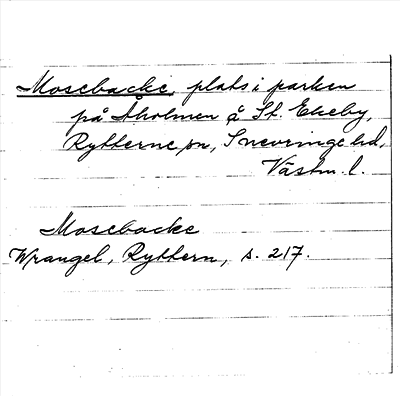 Mosebacke, plats i parken
på Åholmen å St. Ekeby,
Rytterne sn, Snevringe hd,
Västm. l.
Mosebacke
Wrangel, Ryttern, s. 217.